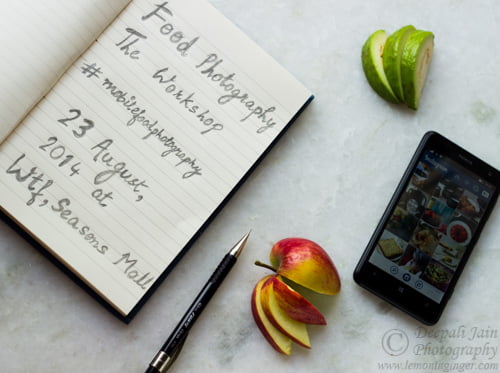 Food Photography
The Workshop
#mobilefoodphotography
23 August,
2014 at
Wtf, Seasons Mall
© Deepali Jain
Photography
www.lemoninginger.com